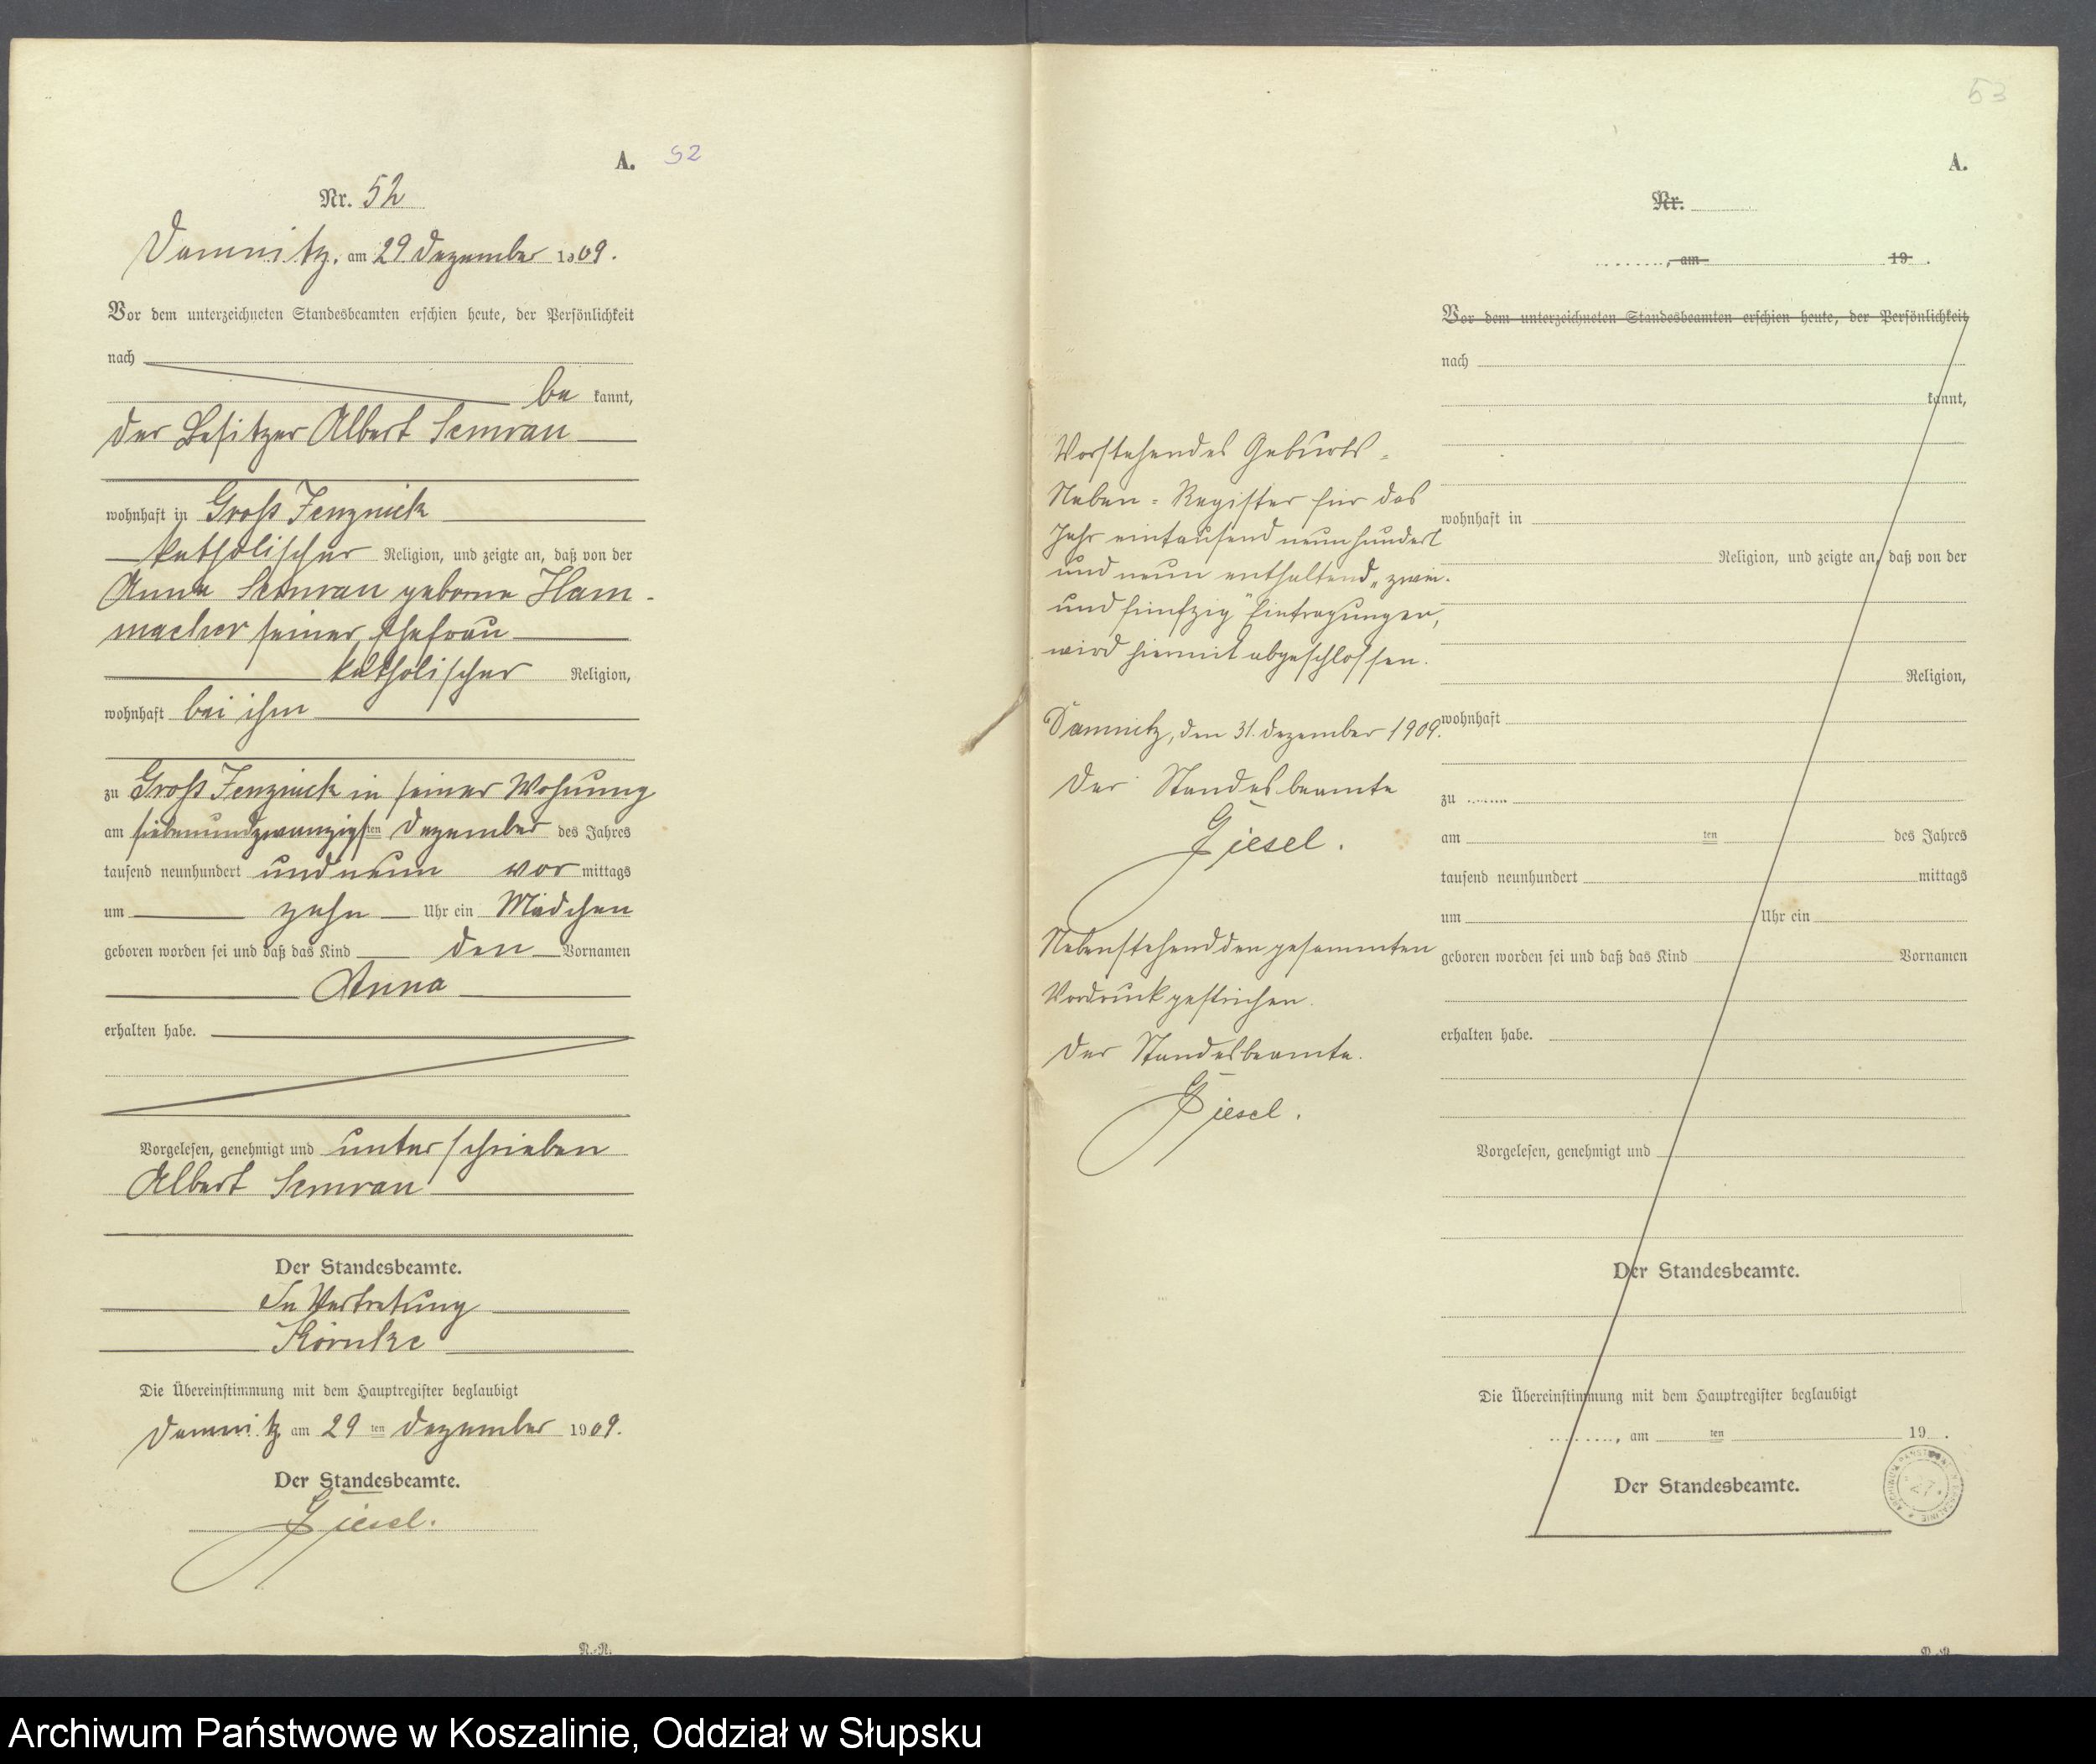 A. 52
Nr. 52
Damnitz, am 29 Dezember 1909.
Vor dem unterzeichneten Standesbeamten erschien heute, der Persönlichkeit
nach
be kannt,
der Besitzer Albert Semrau
wohnhaft in Groß Jenznick
katholischer Religion, und zeigte an, daß von der
Anna Semrau geborne Ham-
macher seiner Ehefrau
katholischer Religion,
wohnhaft bei ihm
zu Groß Jenznick in seiner Wohnung
am siebenundzwanzigsten Dezember des Jahres
tausend neunhundert und neun vor mittags
um zehn Uhr ein Mädchen
geboren worden sei und daß das Kind den Vornamen
Anna
erhalten habe.
Vorgelesen, genehmigt und unterschrieben
Albert Semrau
Der Standesbeamte.
In Vertretung
Die Übereinstimmung mit dem Hauptregister beglaubigt
Damnitz am 29 ten Dezember 1909.
Der Standesbeamte.
Giesel.
Vorstehendes Geburts-
Neben-Register für das
Jahr eintausend neunhundert
und neun enthaltend „zwei-
und fünfzig" Eintragungen,
wird hiermit abgeschlossen.
Damnitz, den 31. Dezember 1909.
Der Standesbeamte
Giesel.
Nebenstehend den gesammten
Vordruck gestrichen.
Der Standesbeamte.
Giesel.
53
A.
Nr.
, am 19 .
Vor dem unterzeichneten Standesbeamten erschien heute, der Persönlichkeit
nach
kannt,
wohnhaft in
Religion, und zeigte an, daß von der
Religion,
wohnhaft
zu
am ten des Jahres
tausend neunhundert mittags
um Uhr ein
geboren worden sei und daß das Kind Vornamen
erhalten habe.
Vorgelesen, genehmigt und
Der Standesbeamte.
Die Übereinstimmung mit dem Hauptregister beglaubigt
, am ten 19 .
Der Standesbeamte.
Archiwum Państwowe w Koszalinie, Oddział w Słupsku